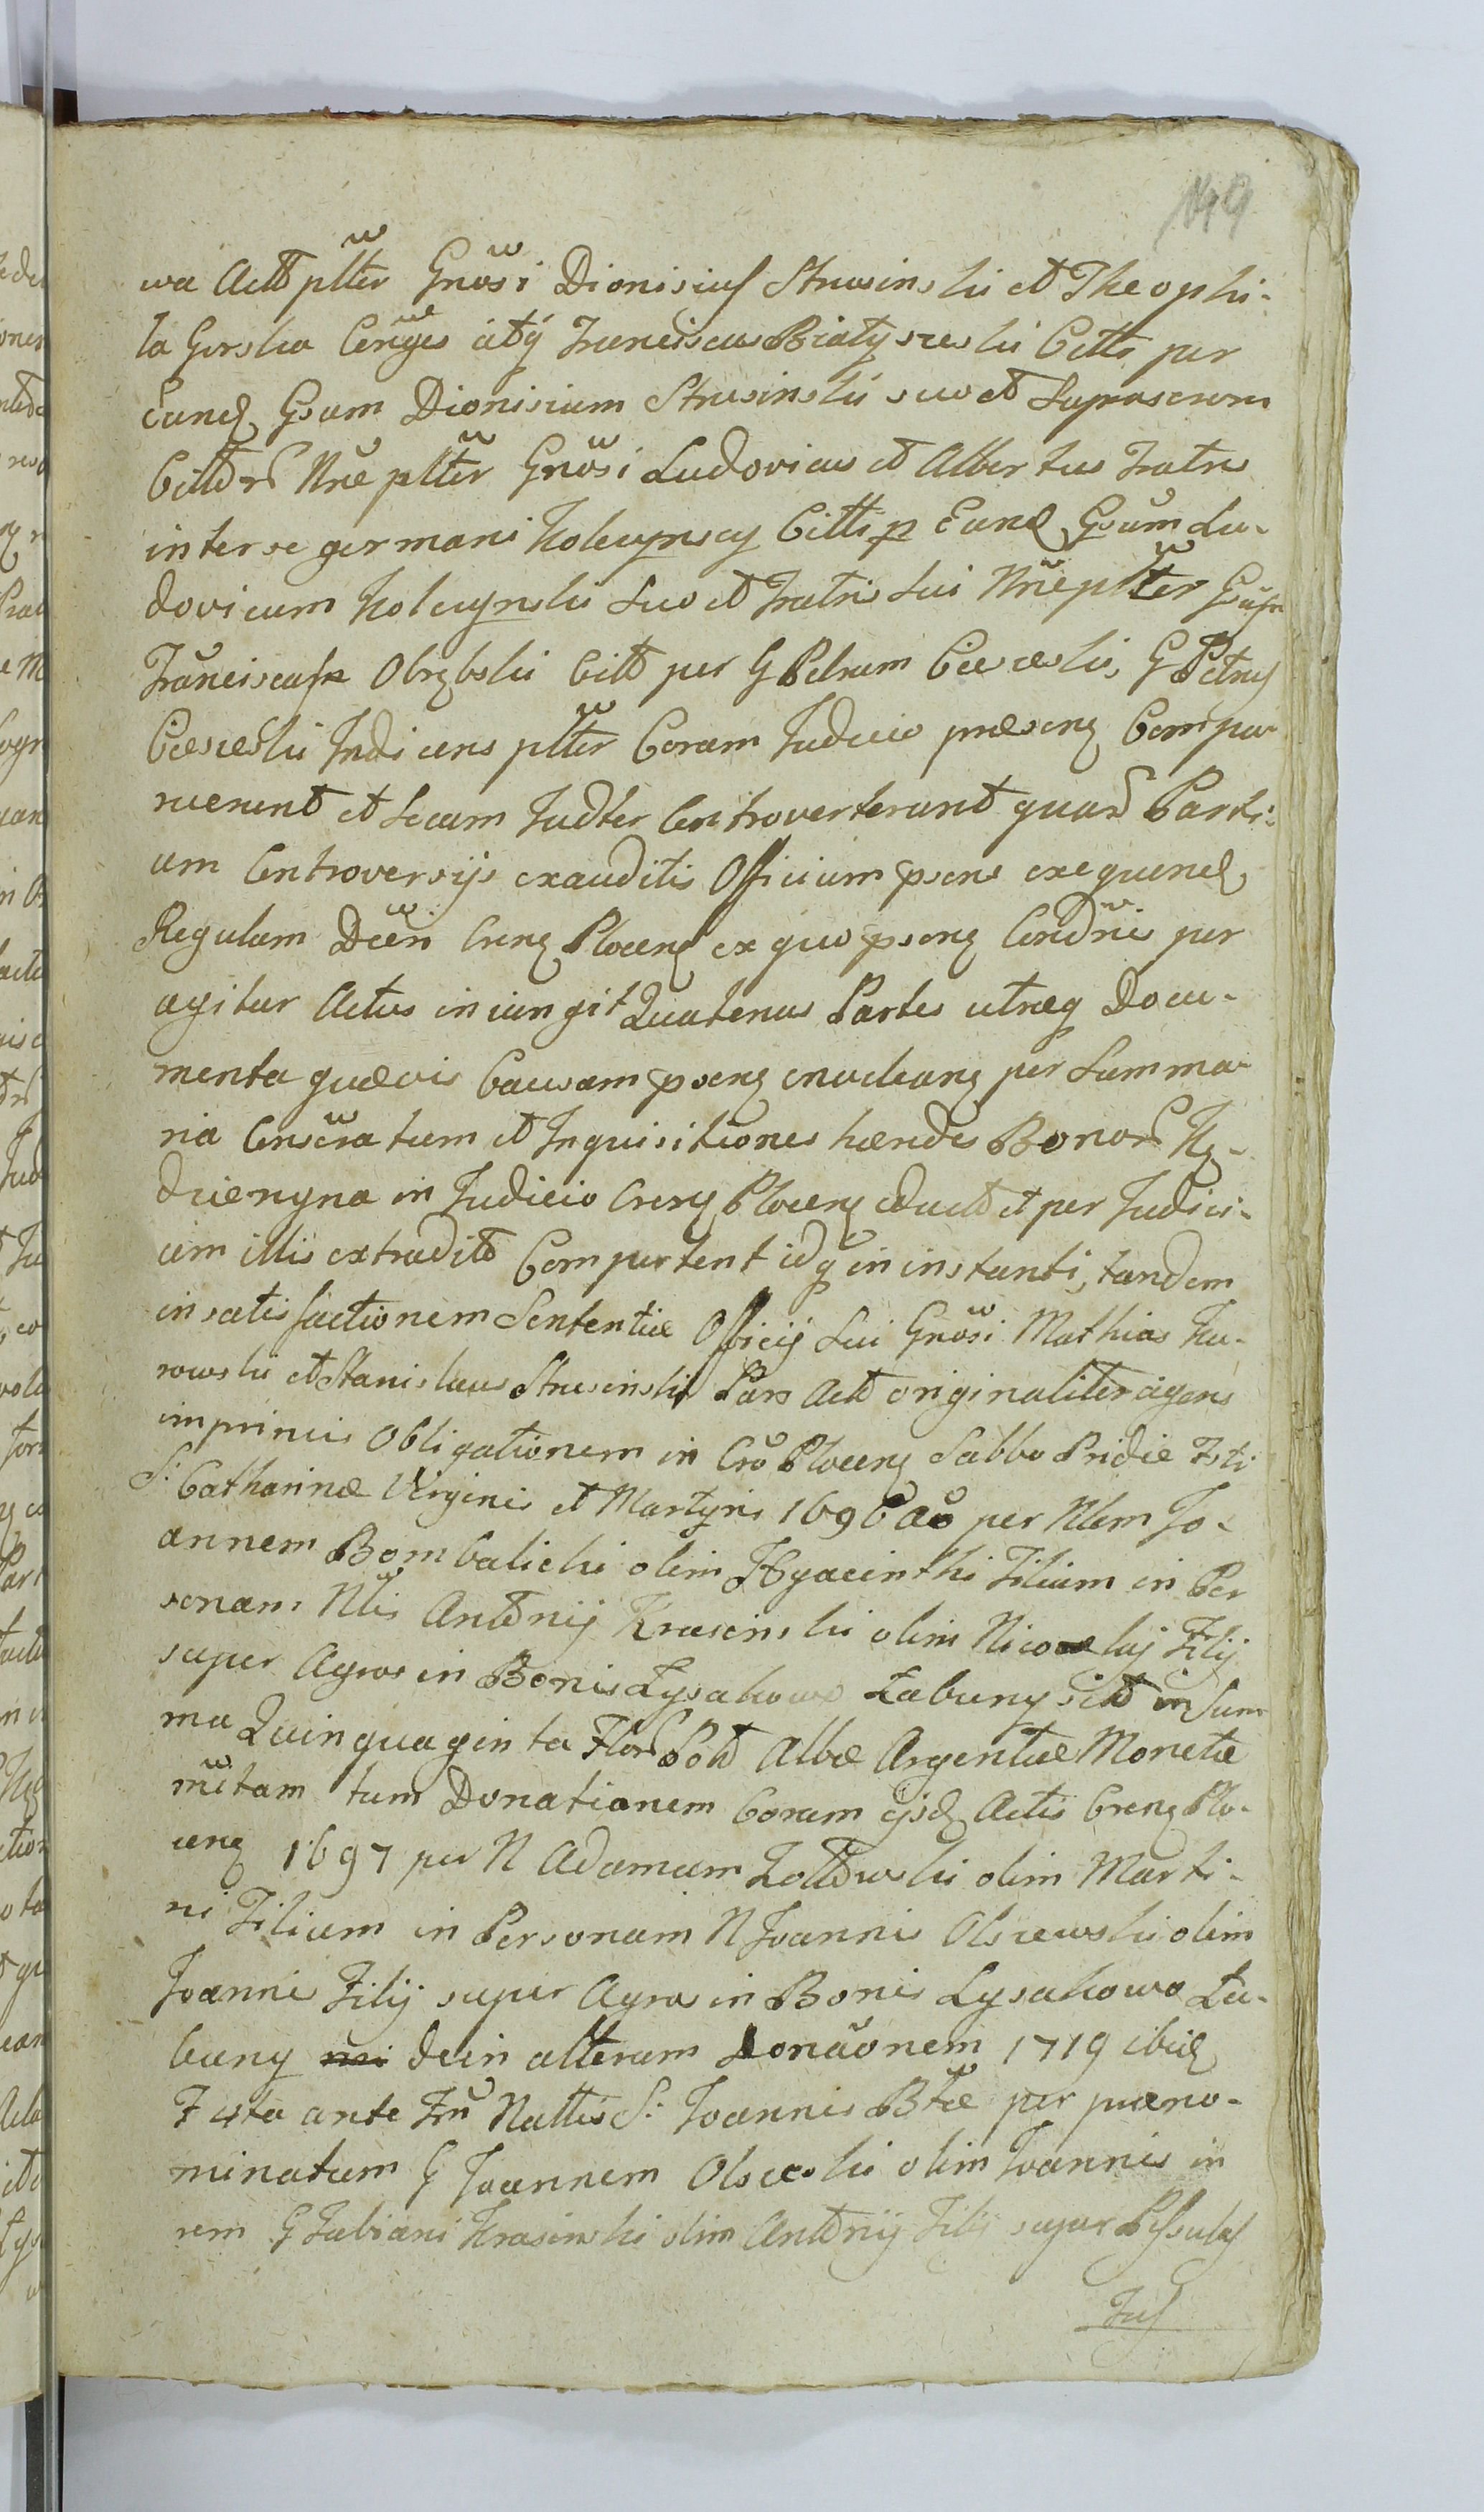 149
wa Actt pltter Gnosi Dionisius Strusinski et Theophi-
la Gorska Coniuges atq Franciscus Białyszewski Citti per
Eund Gsum Dionisium Strusinski suo et Supraserem
Citt rs Nne pltter Gnosi Ludovicus et Albertus Fratres
inter se germani Koleczynscy Citti p Eund Gsum Lu-
dovicum Koleczynski Suo et Fratris Sui Nne pltter Gsusn
Franciscusn Obrębski Citt per G Petrum Ciescieski, G Petrus
Ciescieski Indicens pltter Coram Judicio præseng Compa
ruerunt et Secum Judter Controverterunt quars Parti-
um Controversijs exauditis Officium psens exequend
Regulam Dccen Creng Ploceng ex quo pseng Condnis per
agitur Actus iniungit Quatenus Partes utræq Docu-
menta quævis Causam pseng enucleang per Summa-
ria Conscratum et Inquisitiones hændes Bonors Ną-
dzienyna in Judicio Creng Ploceng eductt et per Judici-
um illis extraditt Comportent idq in instanti, tandem
in satisfactionem Sententiæ Officij Sui Gnosi Mathias Ku-
rowski et Stanislaus Strusinski Pars Actt originaliter agens
imprimis Obligationem in Cro Ploceng Sabbo Pridie Fsti
S: Catharinæ Virginis et Martyris 1696 ao per Nlem Jo-
annem Bombalicki olim Hyacinthi Filium in Per
sonam Nlis Anttnij Krasinski olim Nicolaj Filij
super Agros in Bonis Łysakowo Łabuny sitt in Sum
ma Quinquaginta Flors Poltt Albæ Argenteæ Monetæ
mitam tum Donationem Coram ejsd Actis Creng Plo-
ceng 1697 per N Adamum Zoltowski olim Marti-
ni Filium in Personam N Joannis Olszewski olim
Joannis Filij super Agros in Bonis Lysakowo Ła-
buny dein alteram Donaonem 1719 ibid
F 4ta ante Fm Nattis S: Joannis Btæ per præno-
minatum G Joannem Olszeski olim Joannis in
rem G Fabiani Krasinski olim Anttnij Filij super
Jus